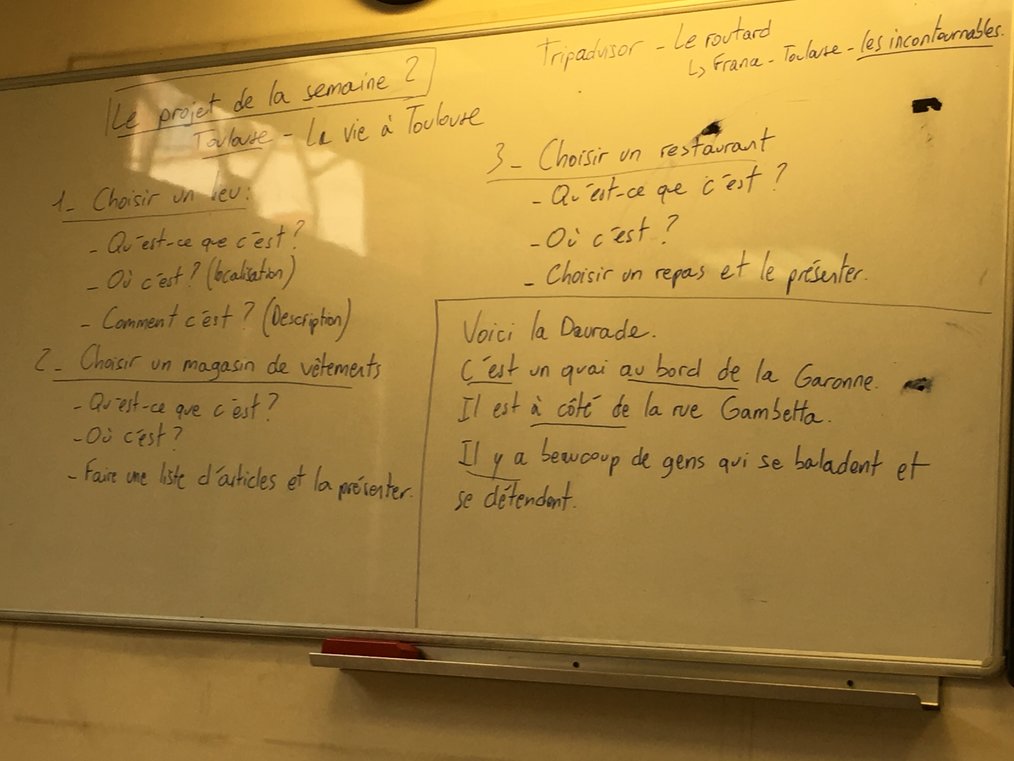 Le projet de la semaine 2
Toulouse - La vie à Toulouse
1- Choisir un lieu:
- Qu'est-ce que c'est?
- Où c'est? (localisation)
- Comment c'est? (Description)
2- Choisir un magasin de vêtements
- Qu'est-ce que c'est?
- Où c'est?
- Faire une liste d'articles et la présenter.
Tripadvisor - Le routard
↳ France - Toulouse - les incontournables.
3- Choisir un restaurant
- Qu'est-ce que c'est?
- Où c'est?
- Choisir un repas et le présenter.
Voici la Daurade.
C'est un quai au bord de la Garonne.
Il est à côté de la rue Gambetta.
Il y a beaucoup de gens qui se baladent et
se détendent.